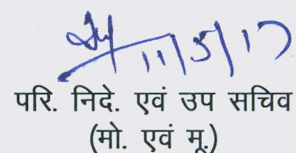 11/5/17
परि. निदे. एवं उप सचिव
(मो. एवं मू.)